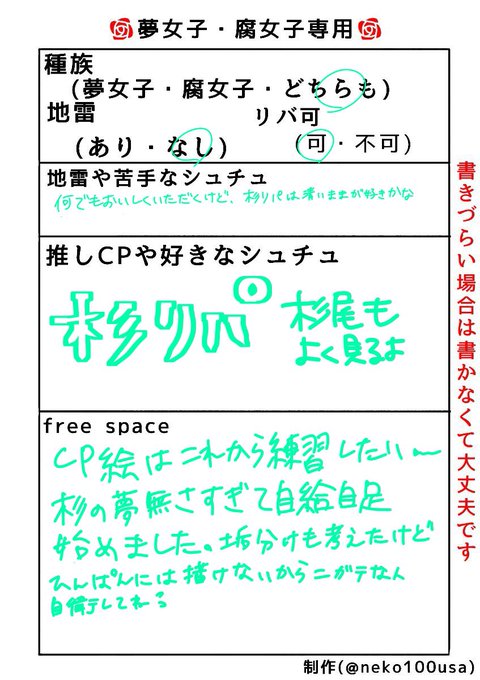 夢女子・腐女子専用
種族
(夢女子・腐女子・どちらも)
地雷
リバ可
(あり・なし)
(可・不可)
地雷や苦手なシュチュ
何でもおいしくいただくけど、杉リパは清いままが好きかな
推しCPや好きなシュチュ
杉リパ
杉尾も
よく見るよ
free space
CP絵はこれから練習したい〜
杉の夢無さすぎて自給自足
始めました。垢分けも考えたけど
ひんぱんには描けないからニガテな人
自衛してれる
書きづらい場合は書かなくて大丈夫です
制作(@neko100usa)